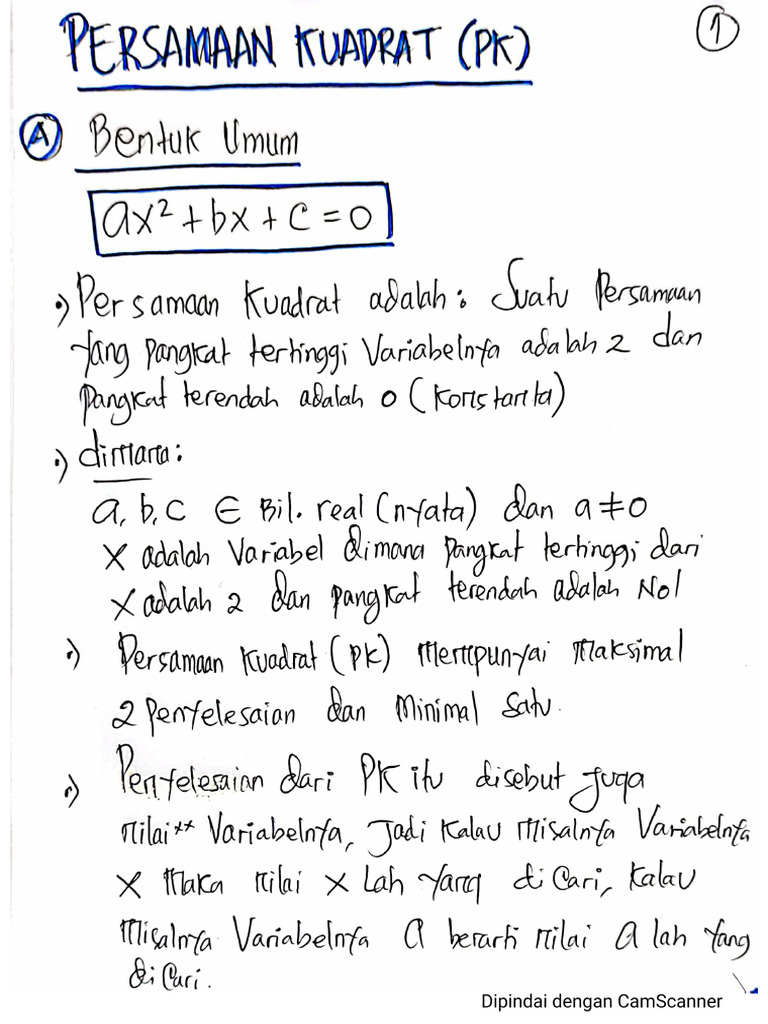 PERSAMAAN KUADRAT (PK)
1
A Bentuk Umum
ax² + bx + c = 0
Persamaan Kuadrat adalah : Suatu Persamaan
Yang Pangkat tertinggi Variabelnya adalah 2 dan
Pangkat terendah adalah 0 (Konstanta)
dimana :
a, b, c ∈ Bil. real (nyata) dan a ≠ 0
x adalah Variabel dimana Pangkat tertinggi dari
x adalah 2 dan pangkat terendah adalah Nol
Persamaan Kuadrat (PK) Mempunyai Maksimal
2 Penyelesaian dan Minimal Satu.
Penyelesaian dari PK itu disebut Juga
nilai** Variabelnya, Jadi Kalau Misalnya Variabelnya
x Maka nilai x Lah Yang di Cari, Kalau
Misalnya Variabelnya a berarti nilai a lah Yang
di Cari.
Dipindai dengan CamScanner